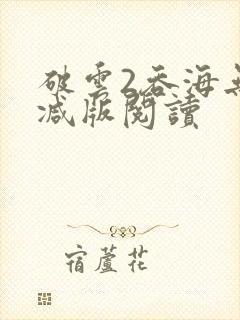 破雲2吞海無
減版閱讀
宿蘆花